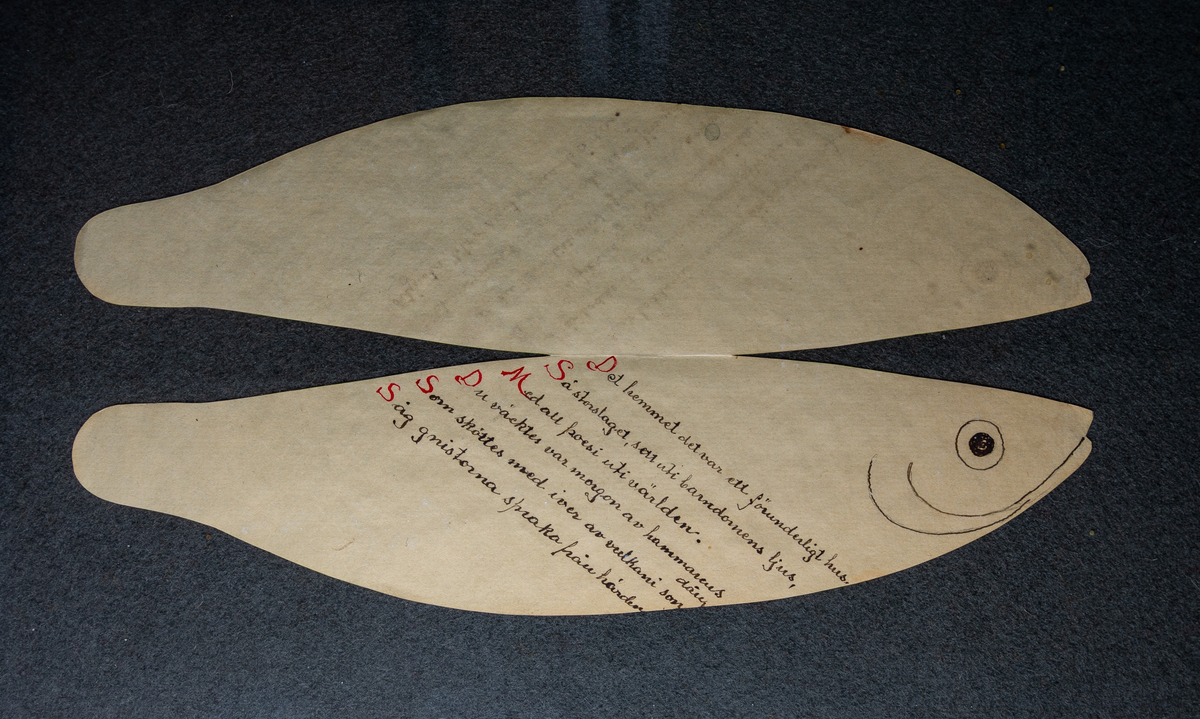 Det hemmet det var ett förunderligt hus,
Så storslaget, som uti barndomens ljus,
Med all poesi uti världen.
Du väcktes var morgon av hammarens
dån,
Som sköttes med iver av vulkani son
Såg gnistorna spraka från härden